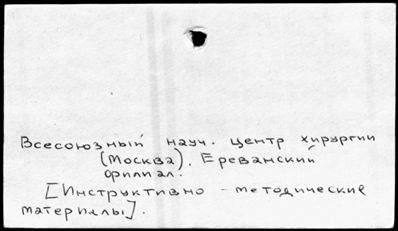 Всесоюзный науч. центр хирургии
(Москва). Ереванский
филиал.
[Инструктивно - методические
материалы].